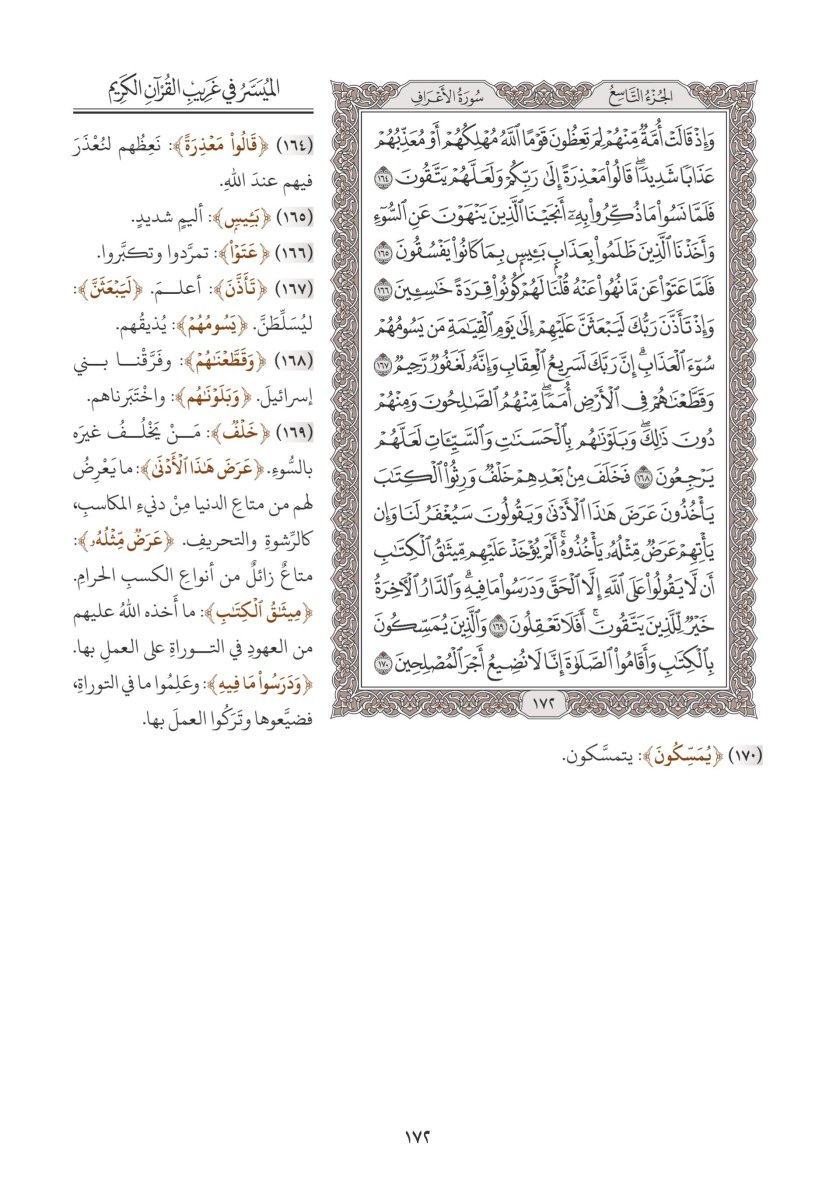 الجُزْءُ التَّاسِعُ
سُورَةُ الأَعْرَافِ
وَإِذْ قَالَتْ أُمَّةٌ مِّنْهُمْ لِمَ تَعِظُونَ قَوْمًا ٱللَّهُ مُهْلِكُهُمْ أَوْ مُعَذِّبُهُمْ
عَذَابًا شَدِيدًاۖ قَالُوا۟ مَعْذِرَةً إِلَىٰ رَبِّكُمْ وَلَعَلَّهُمْ يَتَّقُونَ ١٦٤
فَلَمَّا نَسُوا۟ مَا ذُكِّرُوا۟ بِهِۦٓ أَنجَيْنَا ٱلَّذِينَ يَنْهَوْنَ عَنِ ٱلسُّوٓءِ
وَأَخَذْنَا ٱلَّذِينَ ظَلَمُوا۟ بِعَذَابٍۭ بَـِٔيسٍۭ بِمَا كَانُوا۟ يَفْسُقُونَ ١٦٥
فَلَمَّا عَتَوْا۟ عَن مَّا نُهُوا۟ عَنْهُ قُلْنَا لَهُمْ كُونُوا۟ قِرَدَةً خَـٰسِـِٔينَ ١٦٦
وَإِذْ تَأَذَّنَ رَبُّكَ لَيَبْعَثَنَّ عَلَيْهِمْ إِلَىٰ يَوْمِ ٱلْقِيَـٰمَةِ مَن يَسُومُهُمْ
سُوٓءَ ٱلْعَذَابِۗ إِنَّ رَبَّكَ لَسَرِيعُ ٱلْعِقَابِ وَإِنَّهُۥ لَغَفُورٌ رَّحِيمٌ ١٦٧
وَقَطَّعْنَـٰهُمْ فِى ٱلْأَرْضِ أُمَمًاۖ مِّنْهُمُ ٱلصَّـٰلِحُونَ وَمِنْهُمْ
دُونَ ذَٰلِكَۖ وَبَلَوْنَـٰهُم بِٱلْحَسَنَـٰتِ وَٱلسَّيِّـَٔاتِ لَعَلَّهُمْ
يَرْجِعُونَ ١٦٨ فَخَلَفَ مِنۢ بَعْدِهِمْ خَلْفٌ وَرِثُوا۟ ٱلْكِتَـٰبَ
يَأْخُذُونَ عَرَضَ هَـٰذَا ٱلْأَدْنَىٰ وَيَقُولُونَ سَيُغْفَرُ لَنَا وَإِن
يَأْتِهِمْ عَرَضٌ مِّثْلُهُۥ يَأْخُذُوهُۚ أَلَمْ يُؤْخَذْ عَلَيْهِم مِّيثَـٰقُ ٱلْكِتَـٰبِ
أَن لَّا يَقُولُوا۟ عَلَى ٱللَّهِ إِلَّا ٱلْحَقَّ وَدَرَسُوا۟ مَا فِيهِۗ وَٱلدَّارُ ٱلْـَٔاخِرَةُ
خَيْرٌ لِّلَّذِينَ يَتَّقُونَۚ أَفَلَا تَعْقِلُونَ ١٦٩ وَٱلَّذِينَ يُمَسِّكُونَ
بِٱلْكِتَـٰبِ وَأَقَامُوا۟ ٱلصَّلَوٰةَ إِنَّا لَا نُضِيعُ أَجْرَ ٱلْمُصْلِحِينَ ١٧٠
١٧٢
المُيَسَّرُ فِي غَرِيبِ القُرْآنِ الكَرِيمِ
(١٦٤) ﴿قَالُوا۟ مَعْذِرَةً﴾: نَعِظُهم لنُعْذَرَ
فيهم عندَ اللهِ.
(١٦٥) ﴿بَـِٔيسٍ﴾: أليمٍ شديدٍ.
(١٦٦) ﴿عَتَوْا۟﴾: تمرَّدوا وتكبَّروا.
(١٦٧) ﴿تَأَذَّنَ﴾: أعلـمَ. ﴿لَيَبْعَثَنَّ﴾:
ليُسَلِّطَنَّ. ﴿يَسُومُهُمْ﴾: يُذيقُهم.
(١٦٨) ﴿وَقَطَّعْنَـٰهُمْ﴾: وفَرَّقْنـا بـني
إسرائيلَ. ﴿وَبَلَوْنَـٰهُم﴾: واخْتَبَرناهم.
(١٦٩) ﴿خَلْفٌ﴾: مَـنْ يَخْلُـفُ غيرَه
بالسُّوءِ. ﴿عَرَضَ هَـٰذَا ٱلْأَدْنَىٰ﴾: ما يَعْرِضُ
لهم من متاعِ الدنيا مِنْ دنيءِ المكاسبِ،
كالرِّشوةِ والتحريفِ. ﴿عَرَضٌ مِّثْلُهُۥ﴾:
متاعٌ زائلٌ من أنواعِ الكسبِ الحرامِ.
﴿مِيثَـٰقُ ٱلْكِتَـٰبِ﴾: ما أَخذه اللهُ عليهم
من العهودِ في التـوراةِ على العملِ بها.
﴿وَدَرَسُوا۟ مَا فِيهِ﴾: وعَلِمُوا ما في التوراةِ،
فضيَّعوها وتَرَكُوا العملَ بها.
(١٧٠) ﴿يُمَسِّكُونَ﴾: يتمسَّكون.
١٧٢